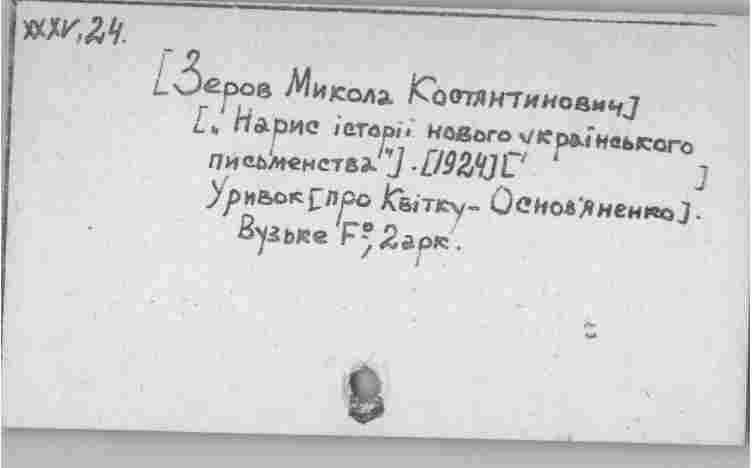 XXXV, 24.
[Зеров Микола Костянтинович]
[„Нарис історії нового українського
письменства"]. [1924] [ ]
Уривок [про Квітку-Основ'яненко].
Вузьке F°, 2 арк.